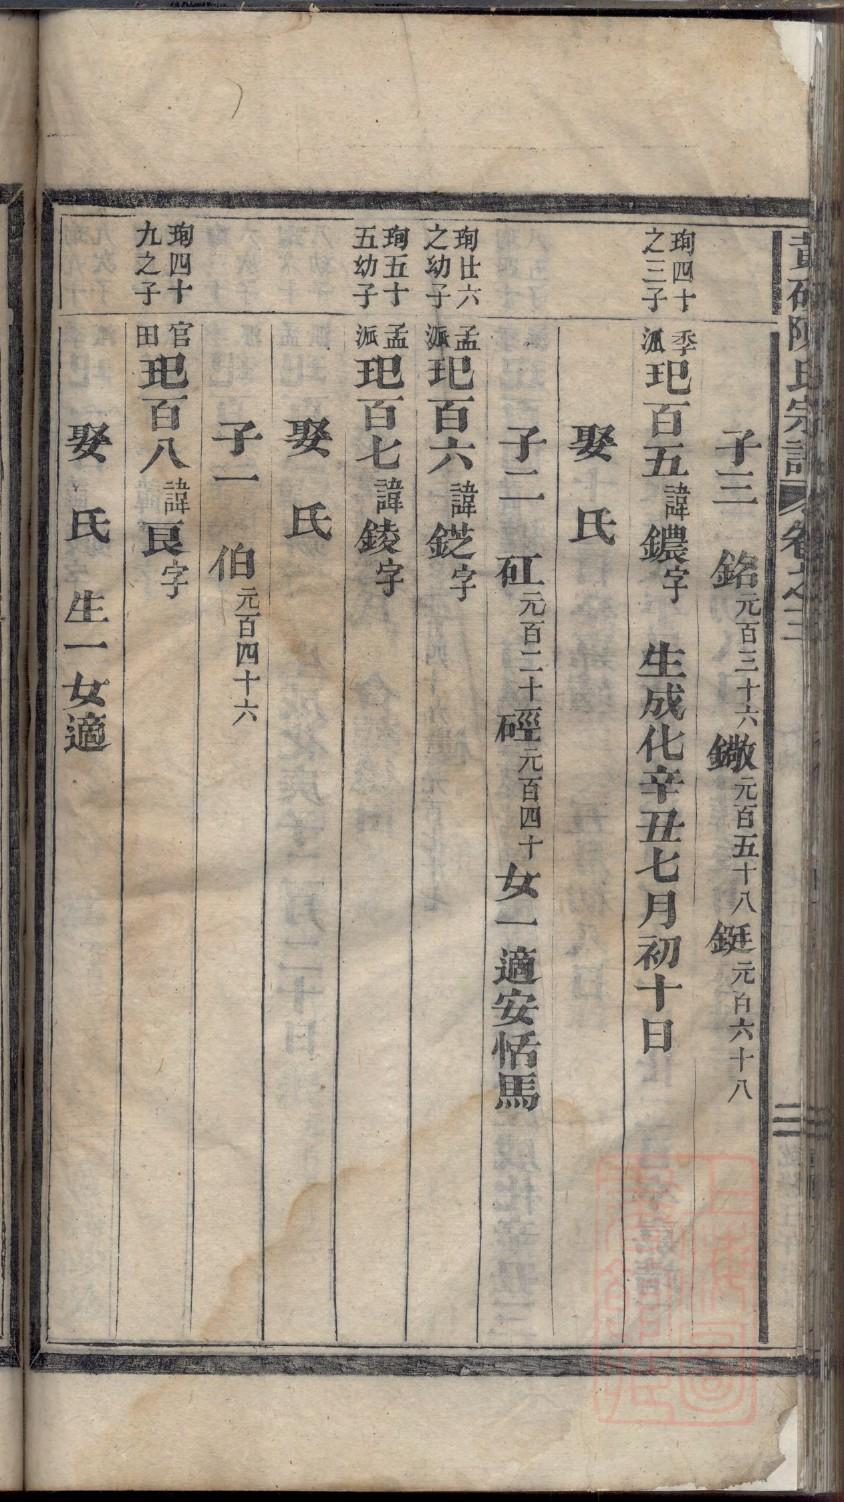 黃硎陳氏宗譜 卷之三
子三 銘元百三十六 鏾元百五十八 鋌元百六十八
珣四十之三子 季派 玘百五 諱鐎字 生成化辛丑七月初十日
娶 氏
子二 矼元百二十三 硜元百四十 女一適安恬馬
珣廿六之幼子 孟派 玘百六 諱鋩字
珣五十五幼子 孟派 玘百七 諱錂字
娶 氏
子一 伯元百四十六
珣四十九之子 官田 玘百八 諱㫰字
娶 氏 生一女適